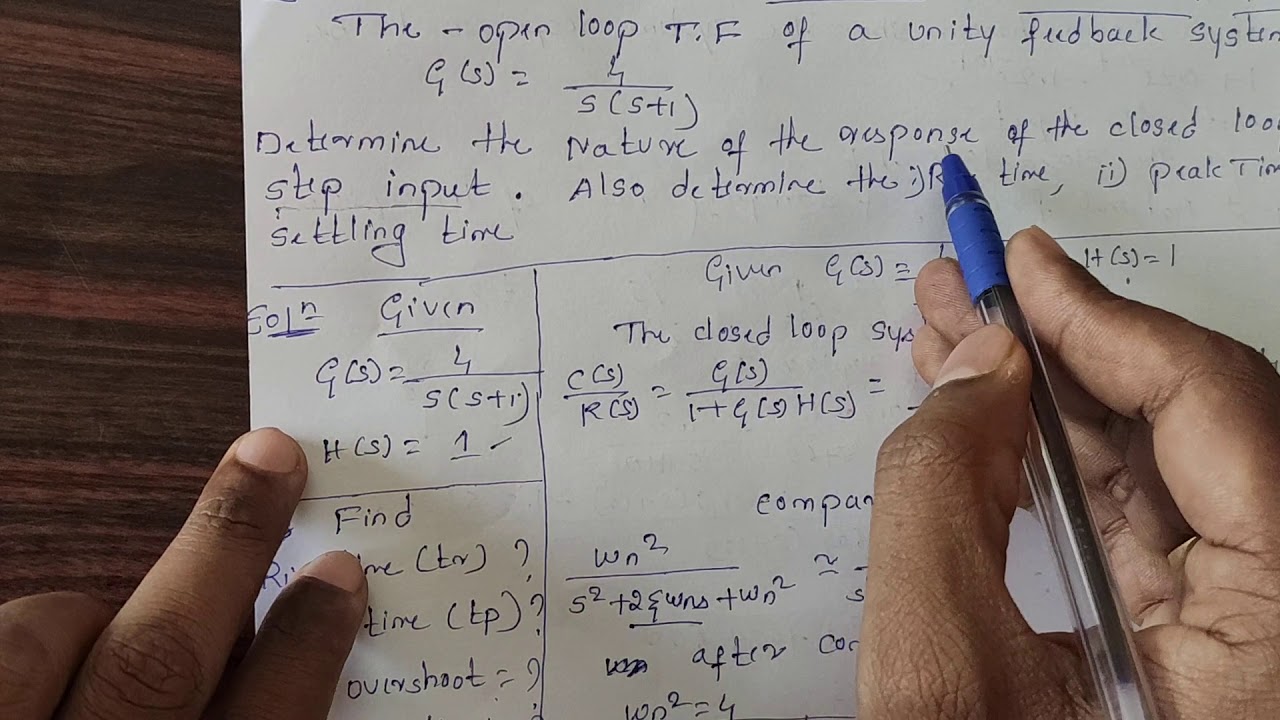 The - open loop T.F of a unity feedback system
G(s) = 4 / s(s+1)
Determine the Nature of the response of the closed loo
step input. Also determine the i) R time, ii) peak Tim
settling time
Soln Given
G(s) = 4 / s(s+1)
H(s) = 1
Find
(tr) ?
time (tp) ?
overshoot = ?
Given G(s) = H(s) = 1
The closed loop sys
C(s)/R(s) = G(s) / 1+G(s)H(s) =
compa
ωn² / s²+2ξωns+ωn² ≃ s
after co
ωn² = 4